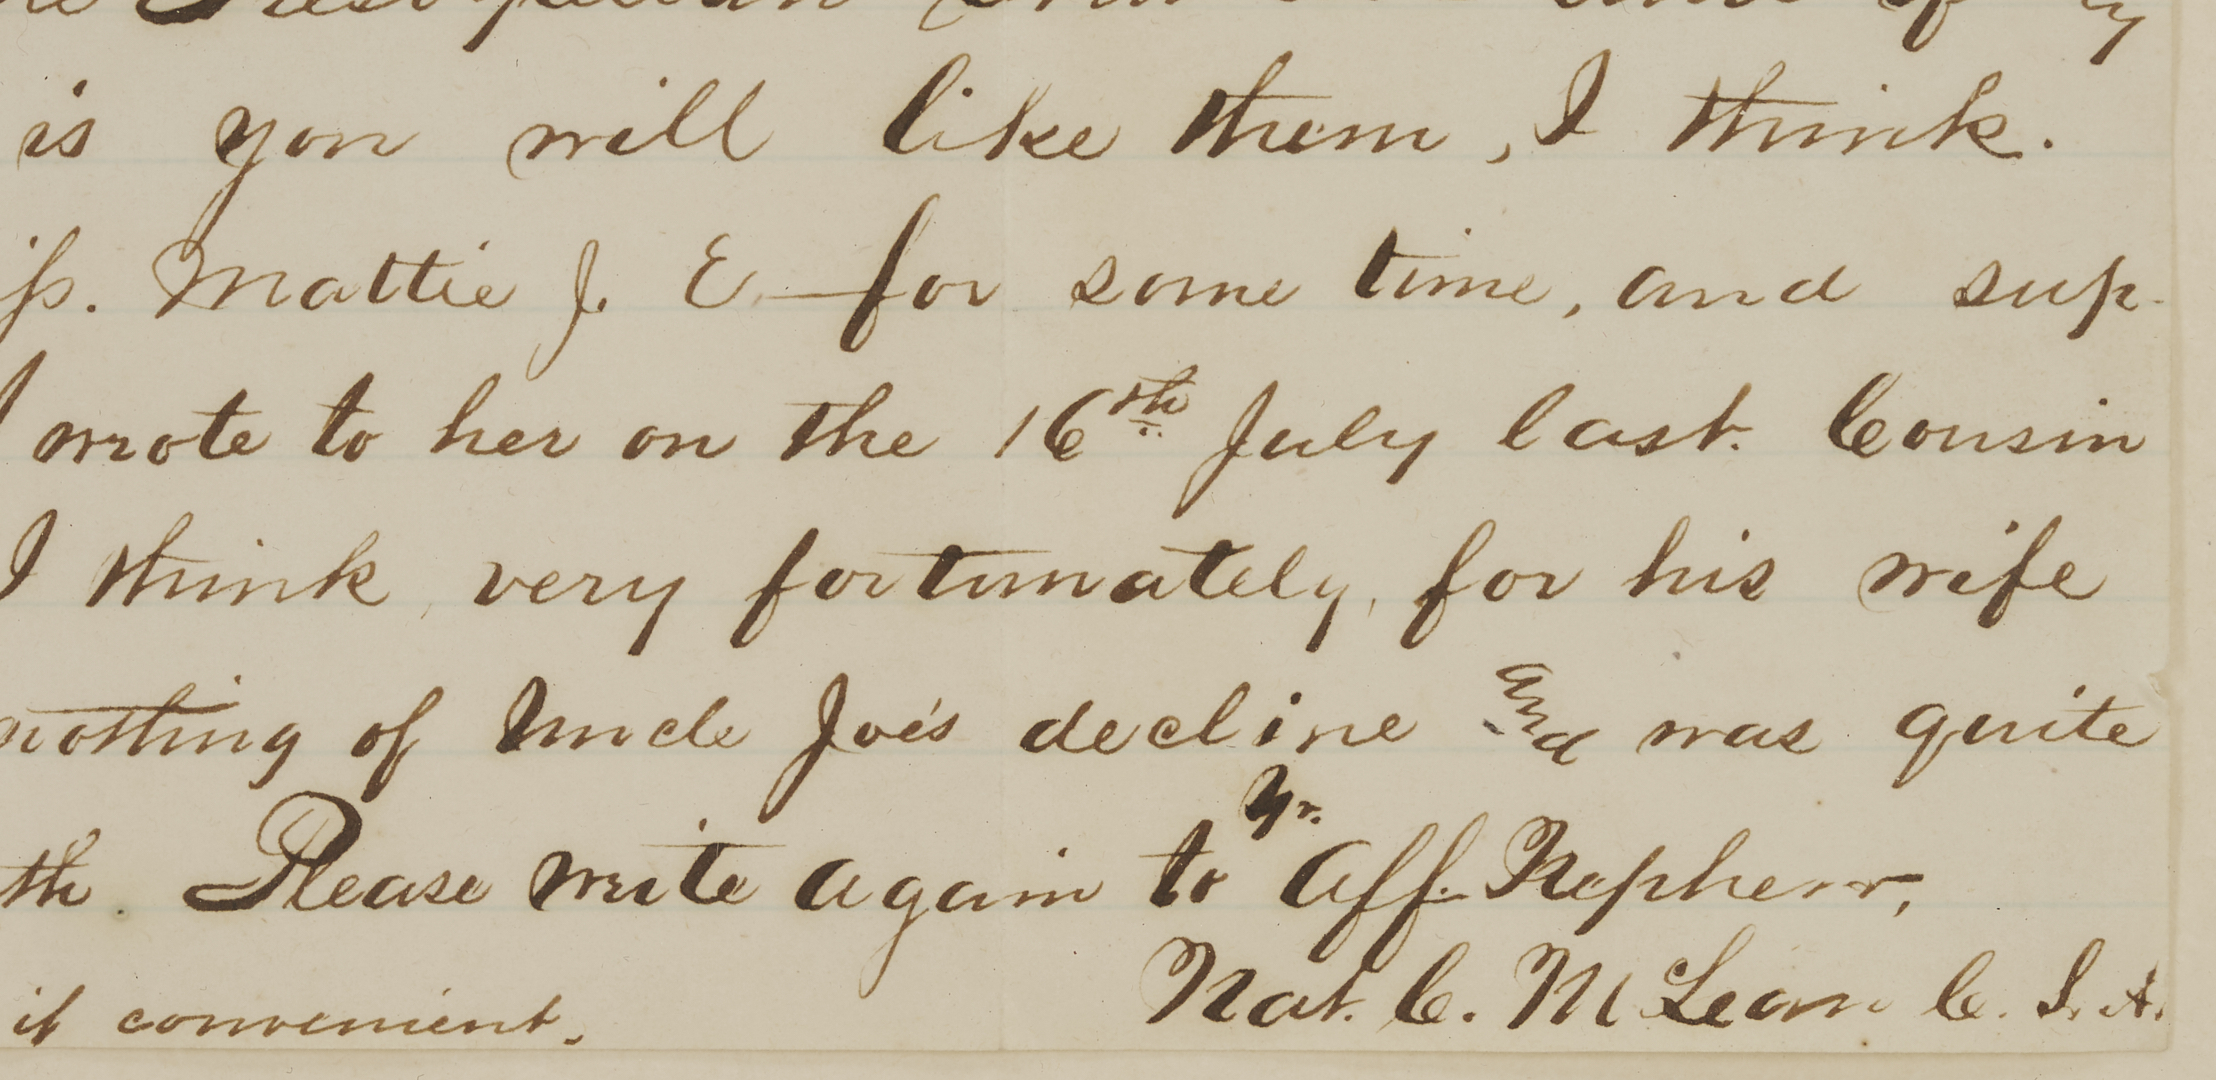 Presbyterian
is you will like them, I think.
Mattie J. E. — for some time, and sup-
I wrote to her on the 16th July last. Cousin
I think, very fortunately, for his wife
nothing of Uncle Joe's decline and was quite
th. Please write again to Yr. Aff. Nephew,
Nat. C. McLean C. S. A.
if convenient.